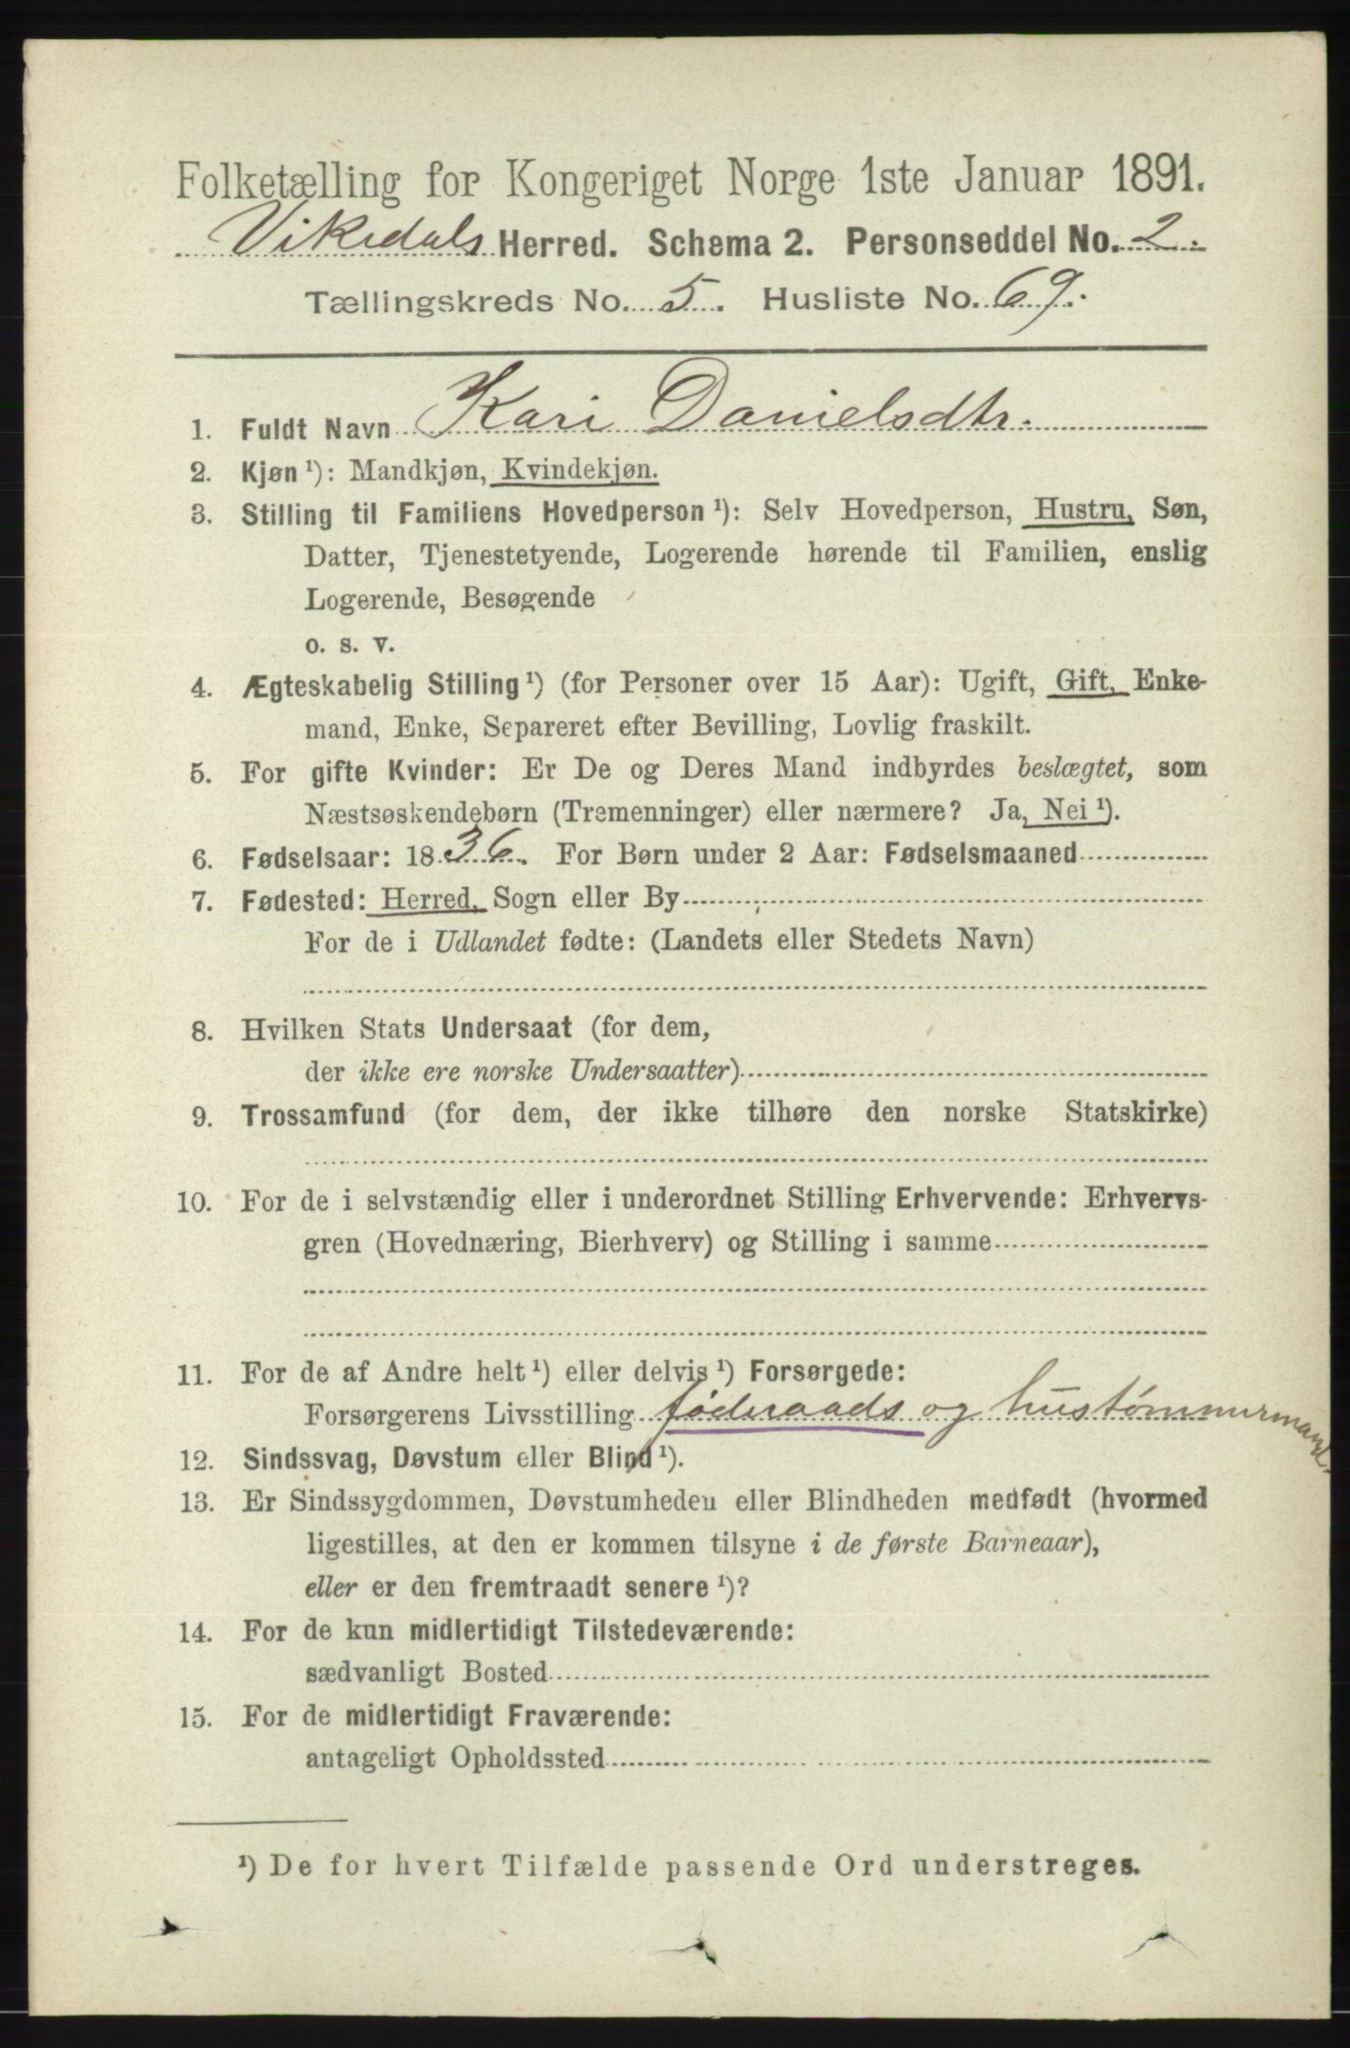 Folketælling for Kongeriget Norge 1ste Januar 1891.
Vikedals Herred. Schema 2. Personseddel No. 2.
Tællingskreds No. 5. Husliste No. 69.
1. Fuldt Navn Kari Danielsdtr.
2. Kjøn ¹): Mandkjøn, Kvindekjøn.
3. Stilling til Familiens Hovedperson ¹): Selv Hovedperson, Hustru, Søn,
Datter, Tjenestetyende, Logerende hørende til Familien, enslig
Logerende, Besøgende
o. s. v.
4. Ægteskabelig Stilling ¹) (for Personer over 15 Aar): Ugift, Gift, Enke-
mand, Enke, Separeret efter Bevilling, Lovlig fraskilt.
5. For gifte Kvinder: Er De og Deres Mand indbyrdes beslægtet, som
Næstsøskendebørn (Tremenninger) eller nærmere? Ja, Nei ¹).
6. Fødselsaar: 1836. For Børn under 2 Aar: Fødselsmaaned
7. Fødested: Herred, Sogn eller By
For de i Udlandet fødte: (Landets eller Stedets Navn)
8. Hvilken Stats Undersaat (for dem,
der ikke ere norske Undersaatter)
9. Trossamfund (for dem, der ikke tilhøre den norske Statskirke)
10. For de i selvstændig eller i underordnet Stilling Erhvervende: Erhvervs-
gren (Hovednæring, Bierhverv) og Stilling i samme
11. For de af Andre helt ¹) eller delvis ¹) Forsørgede:
Forsørgerens Livsstilling föderaads og hustømmermand.
12. Sindssvag, Døvstum eller Blind ¹).
13. Er Sindssygdommen, Døvstumheden eller Blindheden medfødt (hvormed
ligestilles, at den er kommen tilsyne i de første Barneaar),
eller er den fremtraadt senere ¹)?
14. For de kun midlertidigt Tilstedeværende:
sædvanligt Bosted
15. For de midlertidigt Fraværende:
antageligt Opholdssted
¹) De for hvert Tilfælde passende Ord understreges.